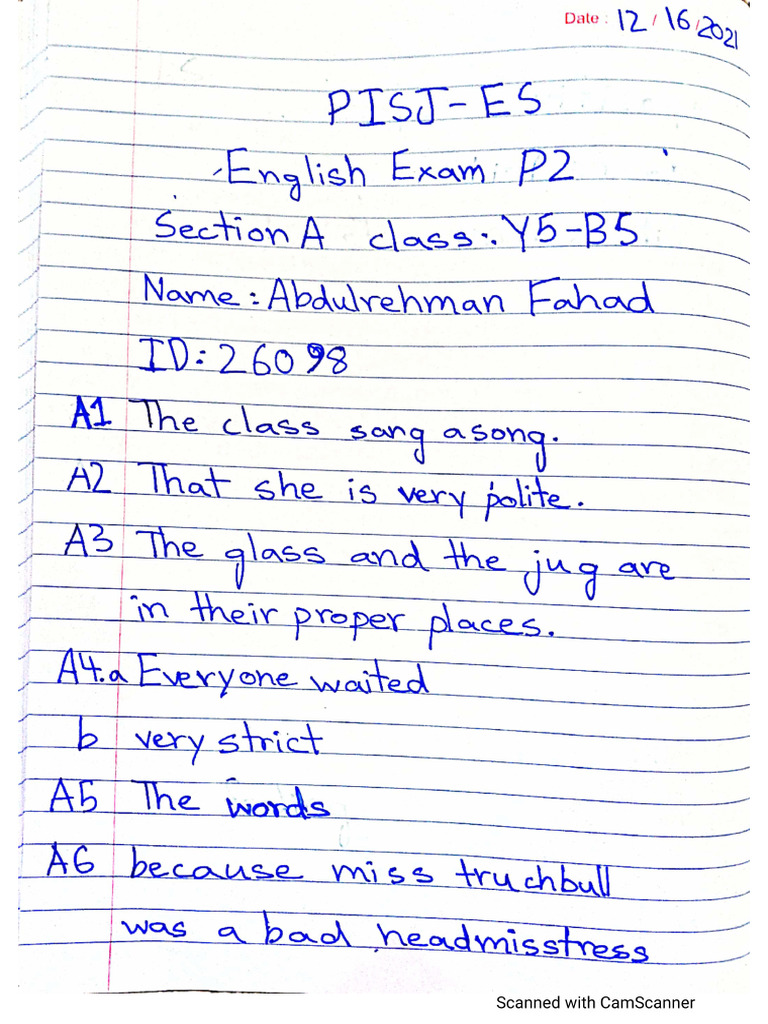 Date : 12/16/2021
PISJ-ES
English Exam P2
Section A class: Y5-B5
Name: Abdulrehman Fahad
ID: 26098
A1 The class sang a song.
A2 That she is very polite.
A3 The glass and the jug are
in their proper places.
A4.a Everyone waited
b very strict
A5 The words
A6 because miss truchbull
was a bad headmisstress
Scanned with CamScanner